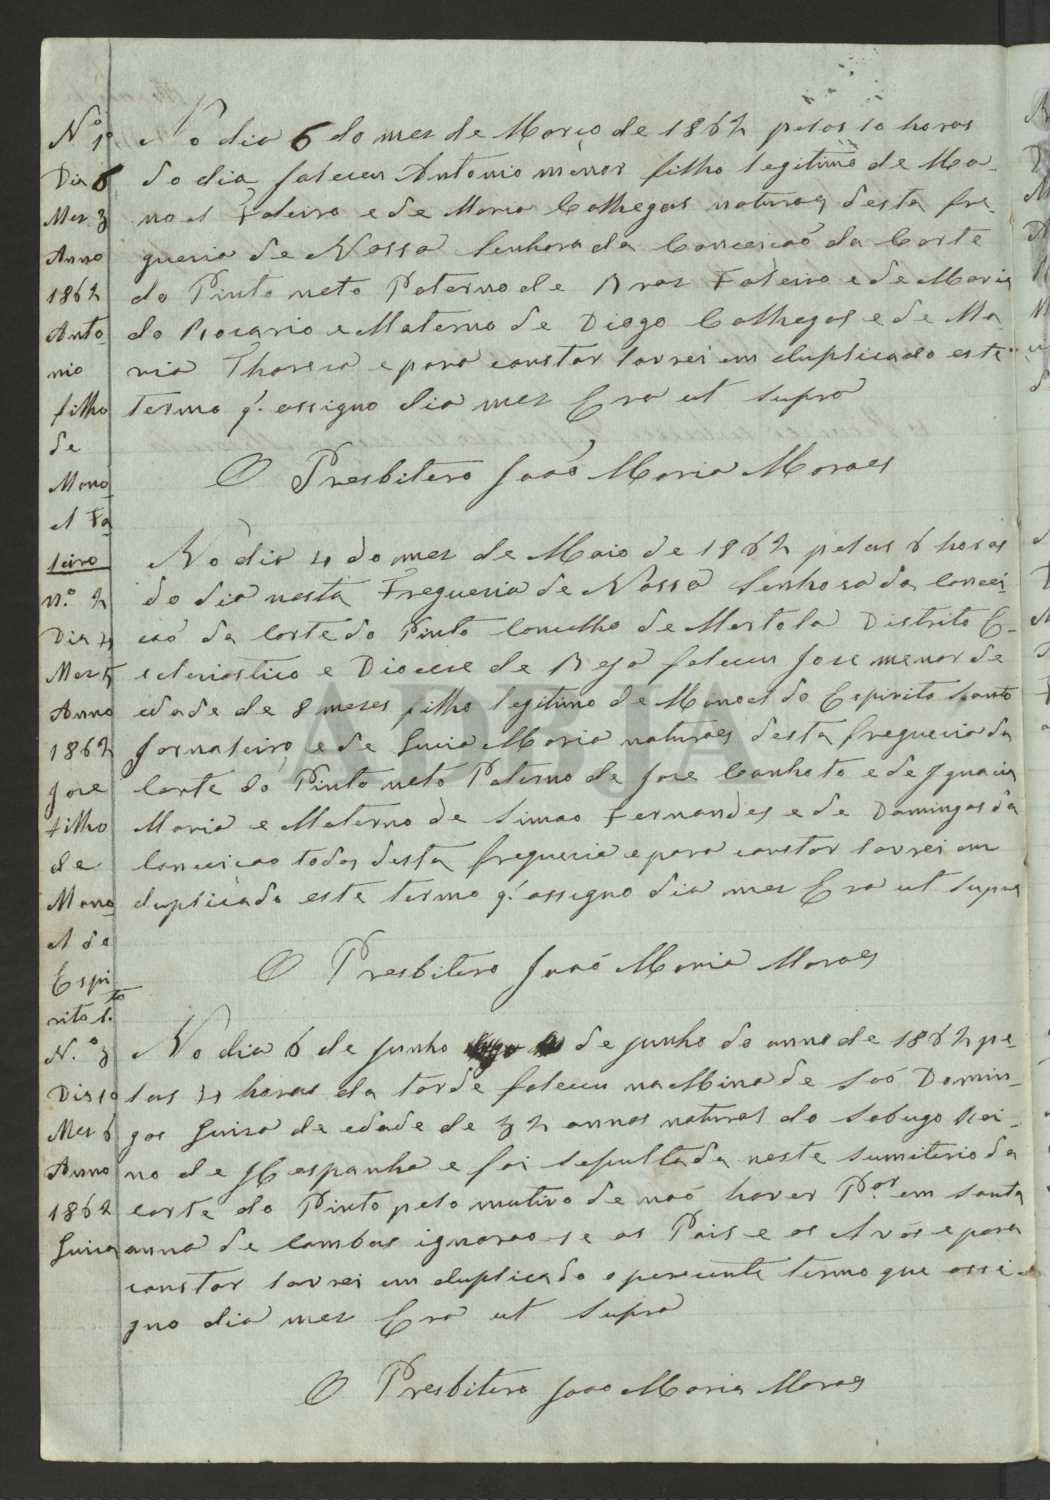 Nº 1º
Dia 6
Mez 3
Anno
1862
Anto-
nio
filho
de
Mano
el Fa
leiro
No dia 6 do mez de Março de 1862 pelas 10 horas
do dia faleceu Antonio menor filho legitimo de Ma-
noel Faleiro e de Maria Calhegas naturaes desta fre-
guezia de Nossa Senhora da Conceicaõ da Corte
do Pinto neto Paterno de Bras Faleiro e de Maria
do Rozario e Materno de Diogo Calhegas e de Ma-
ria Thareza e para constar lavrei em duplicado este
termo q. assigno dia mez Era ut supra
O Presbitero Joaõ Maria Moraes
n.º 2
Dia 4
Mez 5
Anno
1862
Jose
filho
de
Mano
el de
Espi
rito S.to
No dia 4 do mez de Maio de 1862 pelas 6 horas
do dia nesta Freguezia de Nossa Senhora da Concei-
caõ da Corte do Pinto Concelho de Mertola Distrito E-
cleziastico e Diocese de Beja faleceu Jose menor de
edade de 8 mezes filho legitimo de Manoel do Espirito Santo
Jornaleiro, e de Luzia Maria naturaes desta freguezia da
Corte do Pinto neto Paterno de Jose Canhoto e de Ignacia
Maria e Materno de Simao Fernandes e de Domingas da
Conceicao todos desta freguezia e para constar lavrei em
duplicado este termo q. assigno dia mez Era ut supra
O Presbitero Joaõ Maria Moraes
N.º 3
Dis 10
Mez 6
Anno
1862
Luiza
No dia 6 de Junho de Junho do anno de 1862 pe-
las 4 horas da tarde faleceu na Mina de Saõ Domin-
gos Luiza de edade de 32 annos natural do Sabugo Rei-
no de Hespanha e foi sepultada neste sumiterio da
Corte do Pinto pelo mutivo de naõ haver P.or em Santa
anna de Cambas ignorao-se os Pais e os Avós e para
constar lavrei em duplicado o perecente termo que assi-
gno dia mez Era ut supra
O Presbitero Joao Maria Moraes
ADBJA